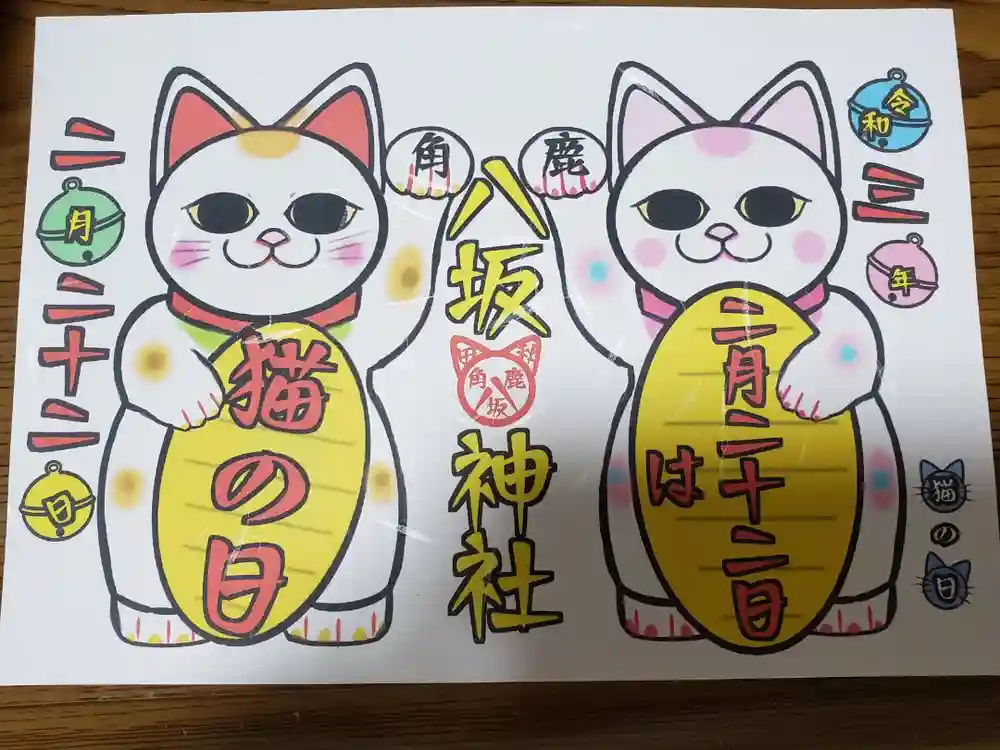 令和三年
猫の日
二月二十二日
は
鹿角
八坂
鹿角
八坂
神社
猫の日
二月二十二日